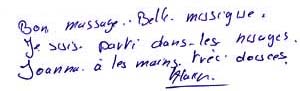 Bon massage.. Belle musique.
Je suis parti dans les nuages.
Joanna à les mains très douces.